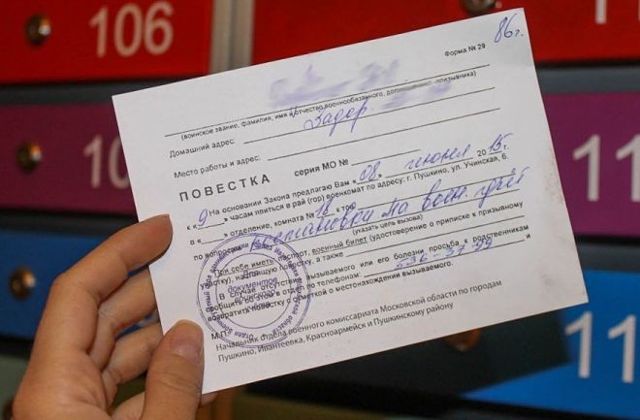 106
86г.
Форма № 29
(воинское звание, фамилия, имя и отчество военнообязанного, допризывника, призывника)
Домашний адрес:
Задор
Место работы и адрес:
ПОВЕСТКА
серия МО №
На основании Закона предлагаю Вам « 08 » июня 2015 г.
к « 9 » часам явиться в рай (гор) военкомат по адресу: г. Пушкино, ул. Учинская, 6.
в « » отделение, комната № 18 к тов
по вопросу постановки на воин. учёт
(указать цель вызова)
При себе иметь: паспорт, военный билет (удостоверение о приписке к призывному
участку), настоящую повестку, а также
В случае отсутствия вызываемого или его болезни просьба к родственникам
сообщить об этом по телефонам:
возвратить повестку с отметкой о местонахождении вызываемого.
М.П.
Для документов
Начальник отдела военного комиссариата Московской области по городам
Пушкино, Ивантеевка, Красноармейск и Пушкинскому району
10
11
11